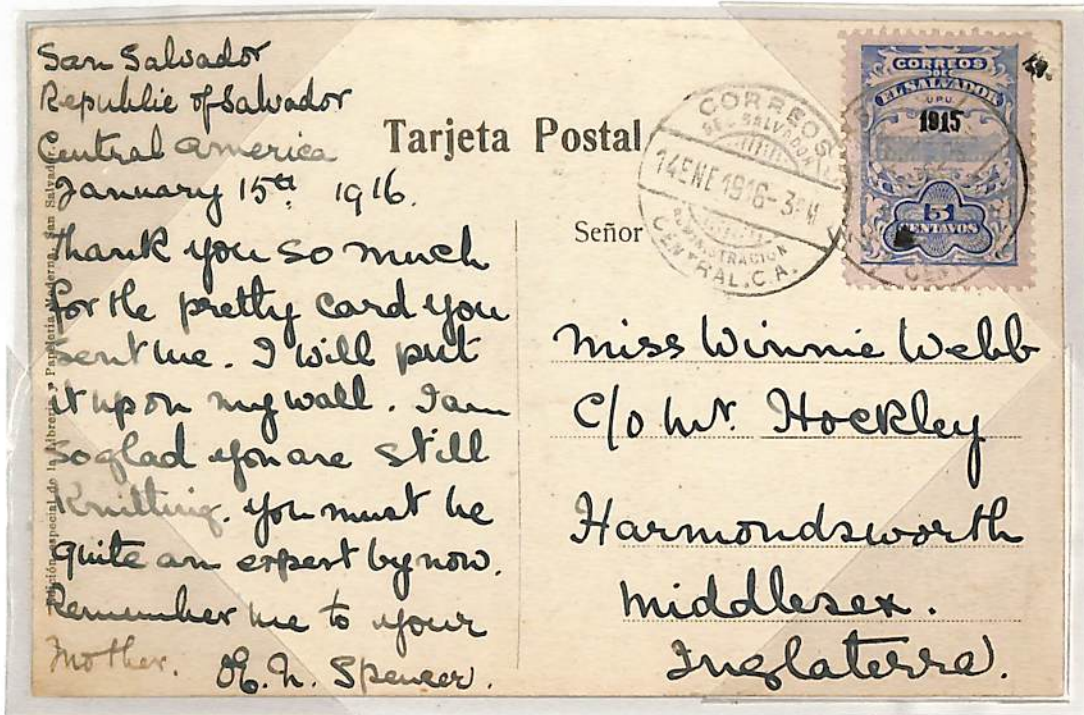 San Salvador
Republic of Salvador
Central America
January 15th 1916.
Thank you so much
for the pretty card you
sent me. I will put
it up on my wall. I am
so glad you are still
Knitting. You must be
quite an expert by now.
Remember me to your
Mother. Spencer.
Edición especial de la Librería y Papelería Moderna, San Salvador.
Tarjeta Postal
CORREOS
DE
EL SALVADOR
U.P.U.
1915
5
CENTAVOS
CORREOS
DEL SALVADOR
14 ENE 1916-3 PM
ADMINISTRACION
CENTRAL. C.A.
Señor
Miss Winnie Webb
c/o Mr. Hockley
Harmondsworth
Middlesex.
Inglaterra.